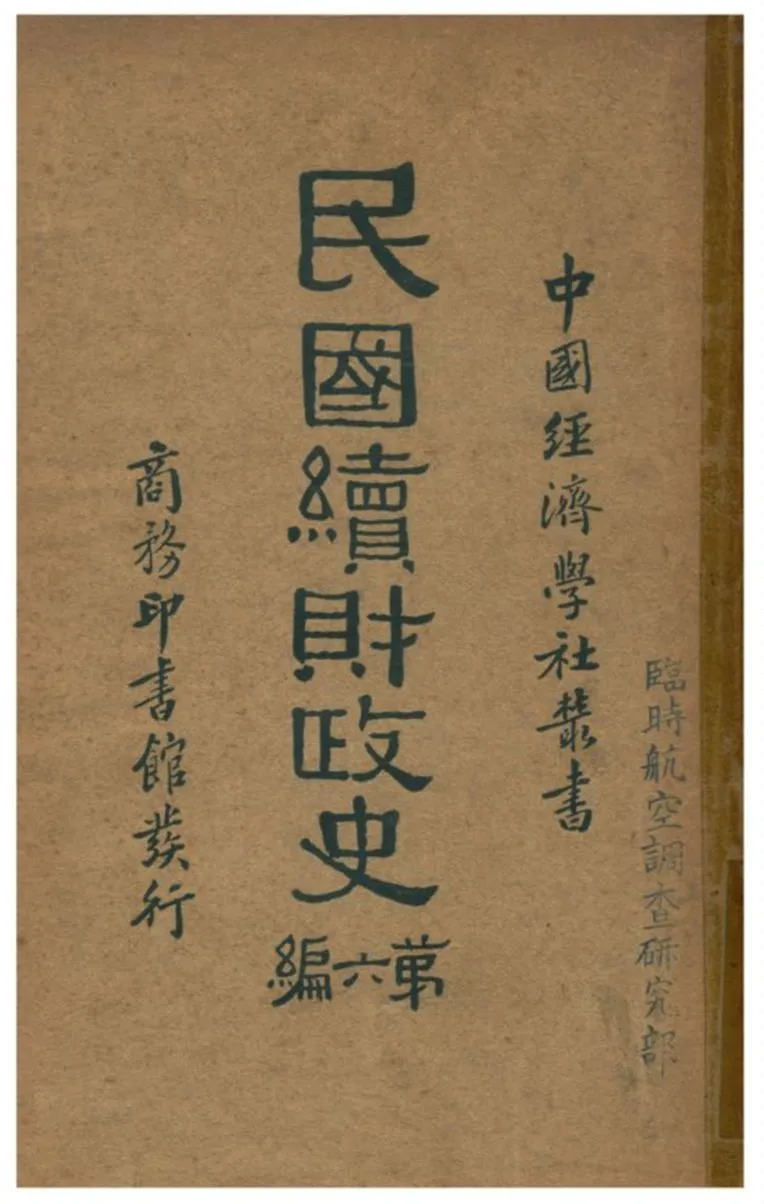 臨時航空調查研究部
中國經濟學社叢書
民國續財政史
第六編
商務印書館發行